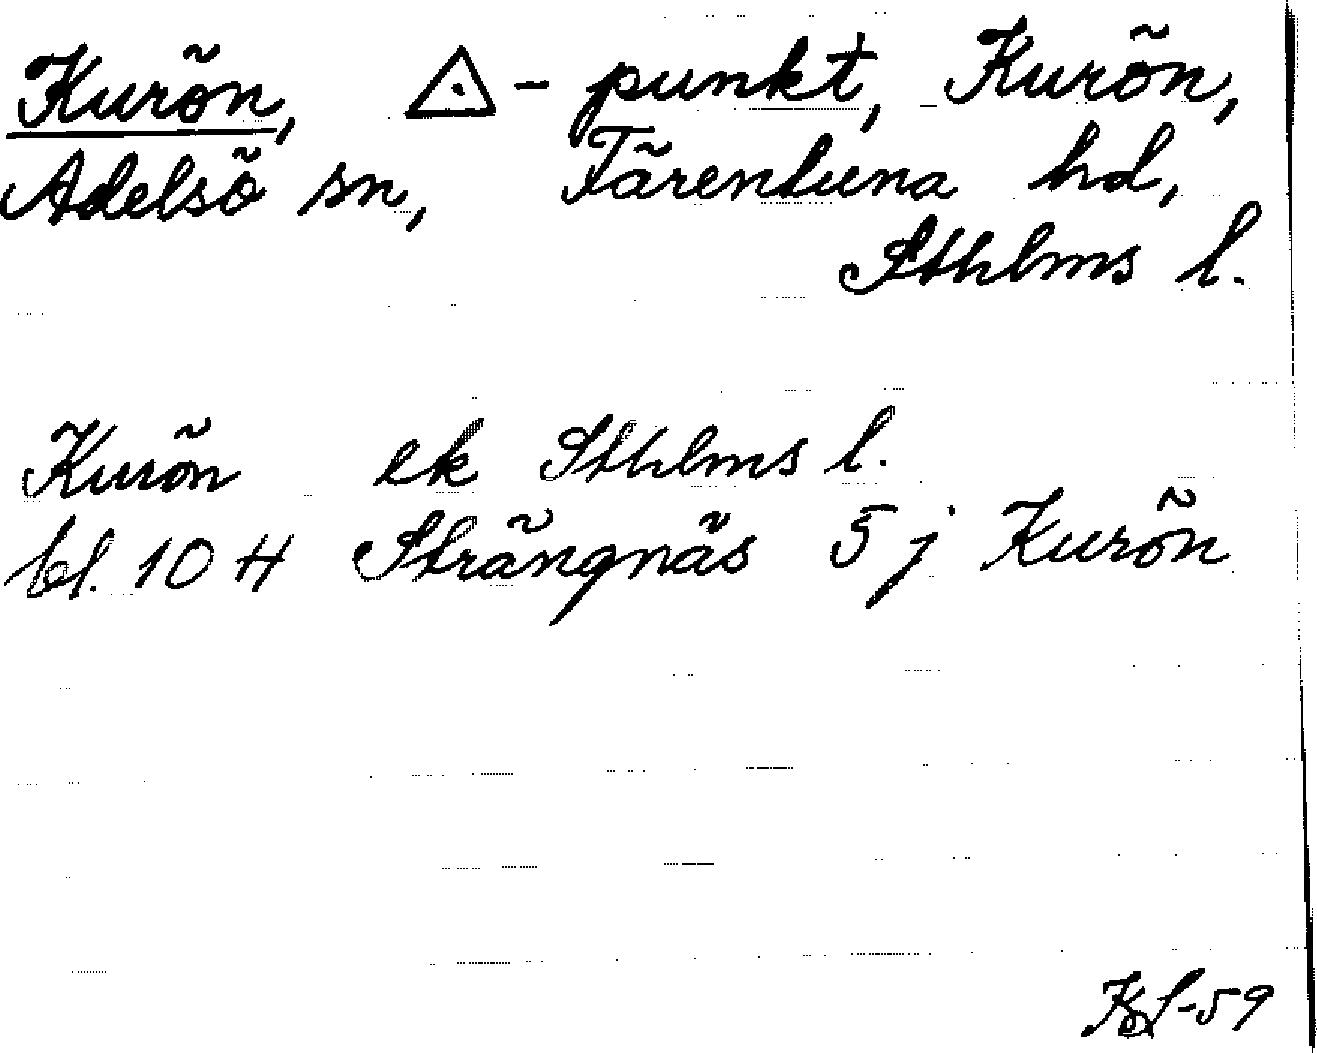 Kurön, △-punkt, Kurön,
Adelsö sn, Färentuna hd,
Sthlms l.
Kurön ek Sthlms l.
bl. 10 H Strängnäs 5 j Kurön
-59